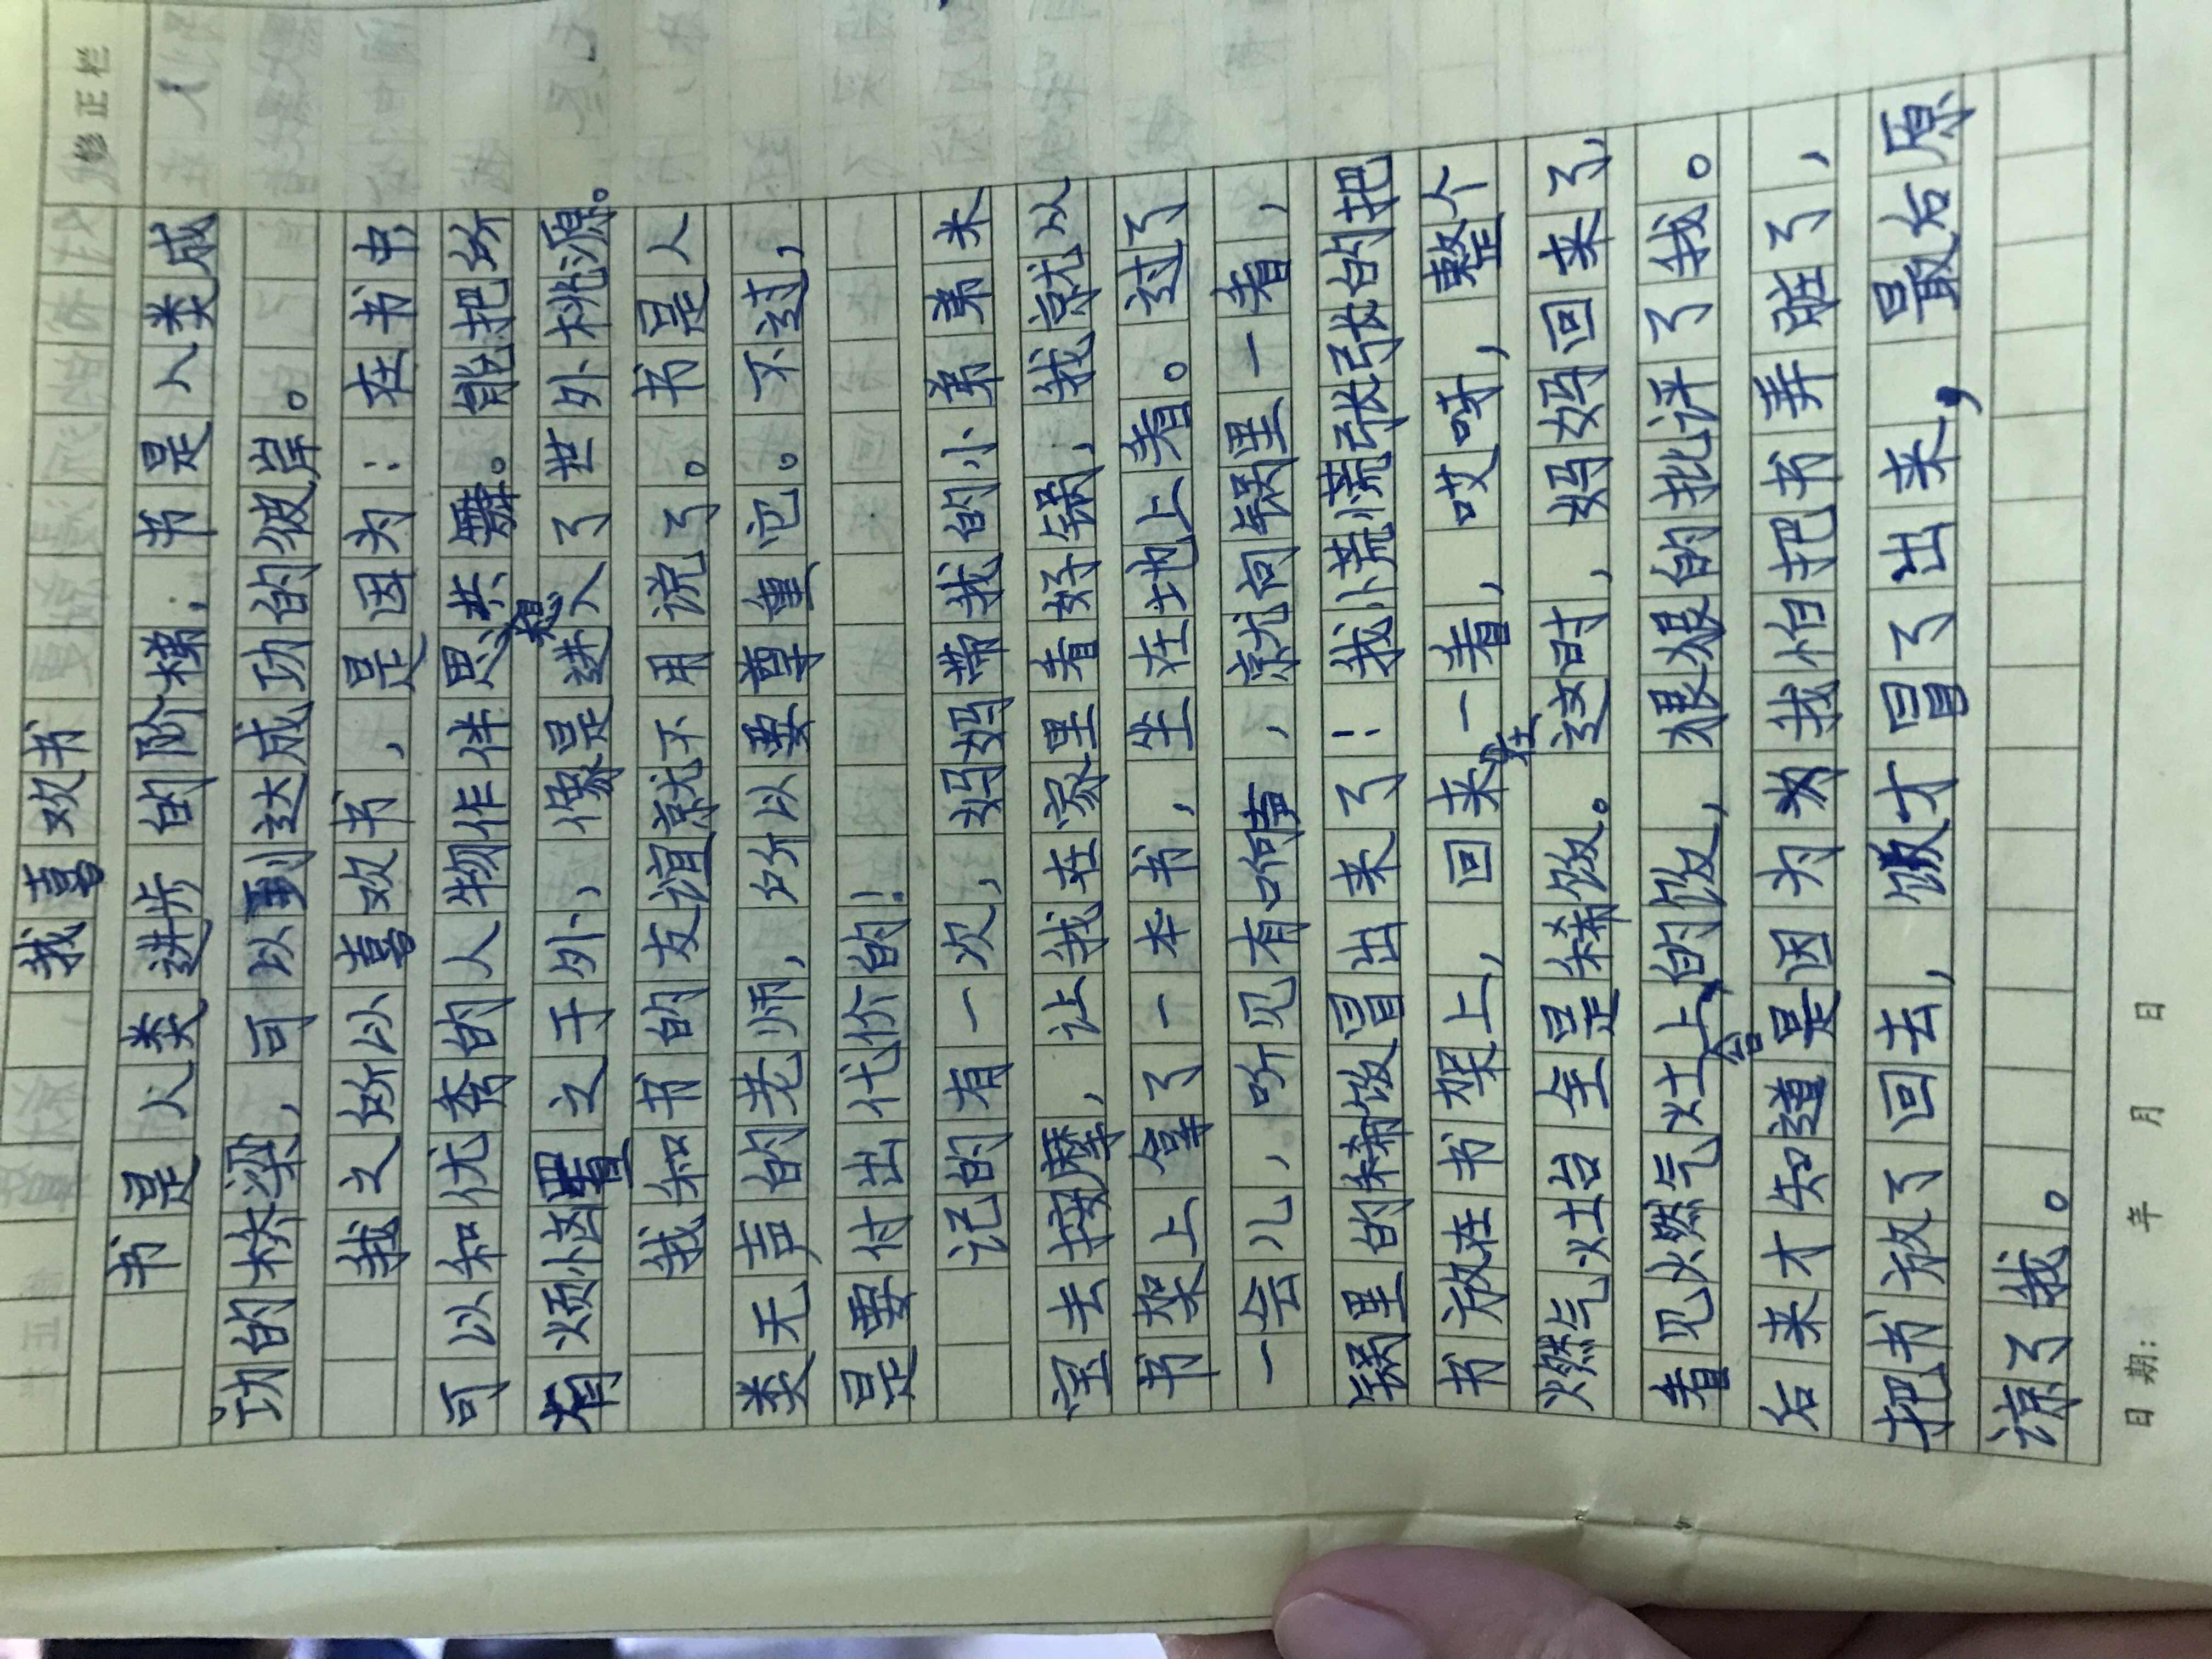 修正栏
我喜欢书
书是人类进步的阶梯；书是人类成
功的桥梁，可以到达成功的彼岸。
我之所以喜欢书，是因为：在书中
可以和优秀的人物作伴思想共舞。能把所
有烦恼置之于外，像是进入了世外桃源。
我和书的友谊就不用说了。书是人
类无声的老师，所以要尊重它。不过，
是要付出代价的！
记的有一次，妈妈带我的小弟弟去
宝去按摩，让我在家里看好锅，我就从
书架上拿了一本书，坐在地上看。过了
一会儿，听见有响声，就向锅里一看，
锅里的稀饭冒出来了！我慌慌张张的把
书放在书架上，回来一看，哎呀，整个
燃气灶台全是稀饭。在这时，妈妈回来了，
看见燃气灶台上的饭，狠狠的批评了我。
后来才知道是因为为我怕把书弄脏了，
把书放了回去，饭才冒了出来，最后原
谅了我。
日期： 年 月 日